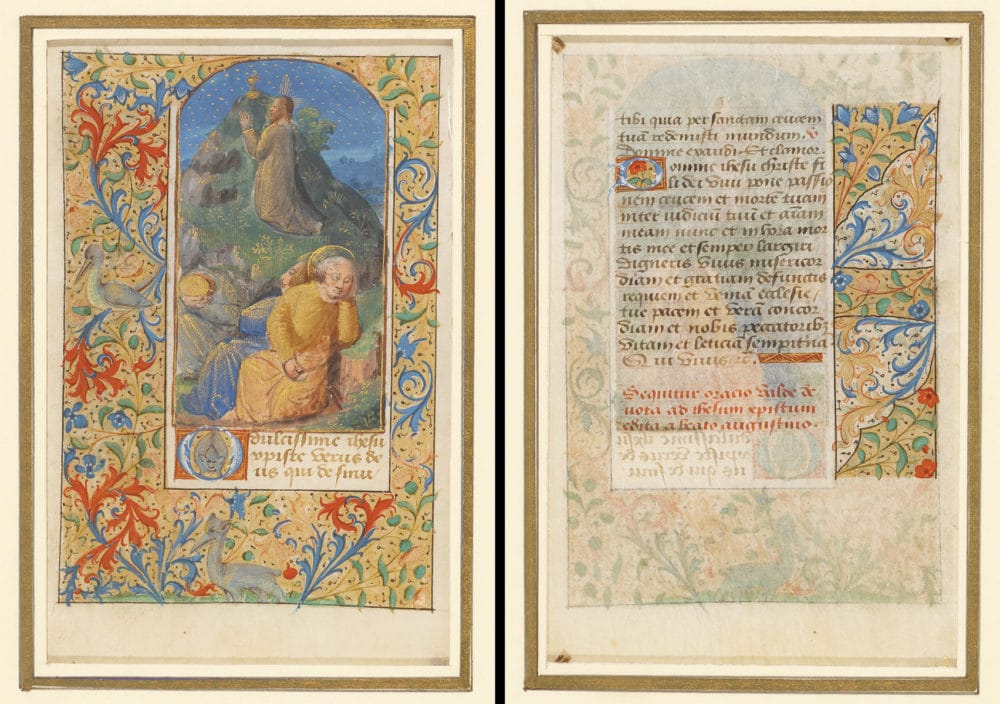 O dulcissime ihesu
xpiste verus de
us qui de sinu
tibi quia per sanctam crucem
tuā redemisti mundum. v
Domine exaudi. Et clamor.
Domine ihesu christe fi
li dei vivi pone passio
nem crucem et mortē tuam
inter iudiciū tuū et aīam
meam nunc et in hora mor
tis mee et semper largiri
digneris vivis misericor
diam et gratiam defunctis
requiem et veniā eclesie /
tue pacem et verā concor
diam et nobis peccatoribꝫ
vitam et leticiā sempitnā
Qui vivis ⁊c.
Sequitur oracio valde de
vota ad ihesum xpistum
edita a beato augustino.